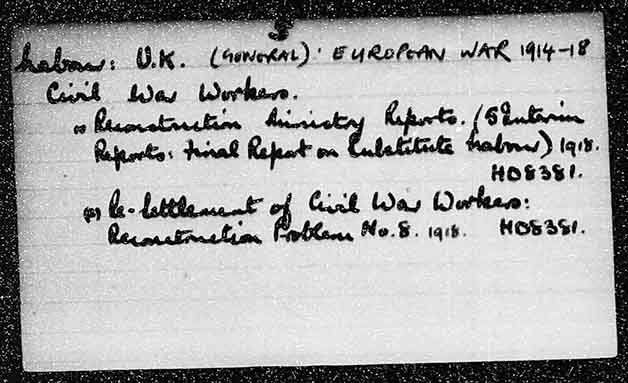 Labour: U.K. (GENERAL): EUROPEAN WAR 1914-18
Civil War Workers.
(1) Reconstruction Ministry Reports. (5 Interim
Reports: Final Report on Substitute Labour) 1918.
HD8381.
(2) Re-Settlement of Civil War Workers:
Reconstruction Problem No. 8. 1918. HD8381.